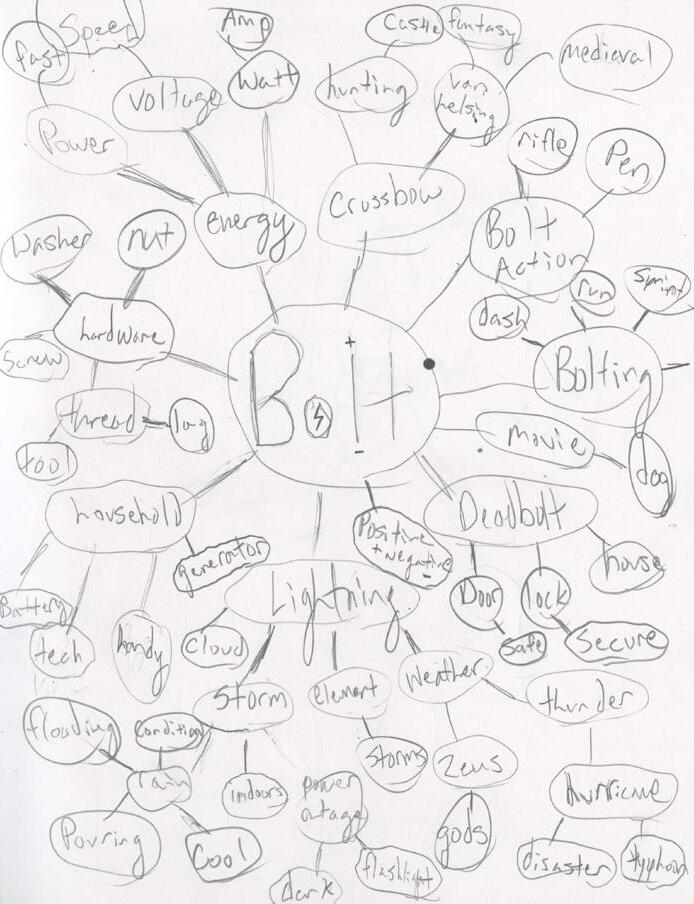 Speed
fast
Amp
Castle
fantasy
medieval
Voltage
Watt
hunting
van
helsing
Power
rifle
Pen
energy
Crossbow
Bolt
Action
washer
nut
hardware
dash
run
Sprint
Screw
Bolt
+
-
Bolting
thread
lug
tool
movie
dog
household
generator
Positive
+ negative
-
Deadbolt
house
Battery
tech
handy
Cloud
Lightning
Door
lock
Safe
Secure
Storm
element
Weather
thunder
flooding
Condition
rain
indoors
Storms
Zeus
Hurricane
Pouring
Cool
power
outage
gods
disaster
typhoon
dark
flashlight